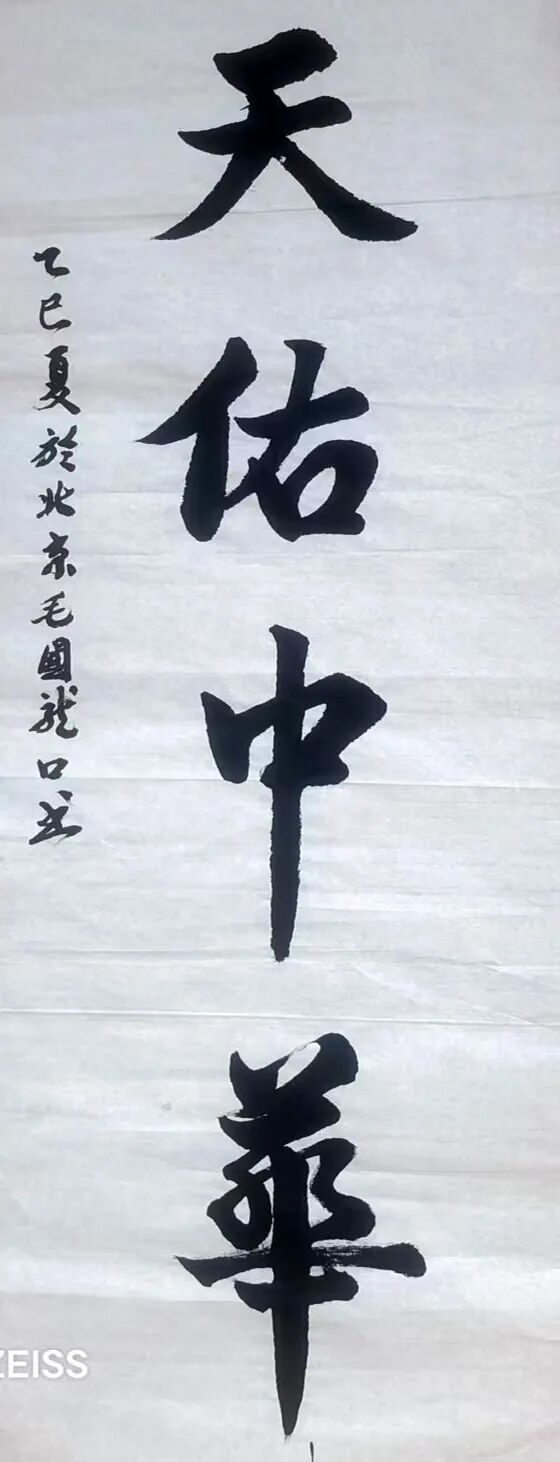 天佑中華
乙巳夏於北京毛國龍口书
ZEISS